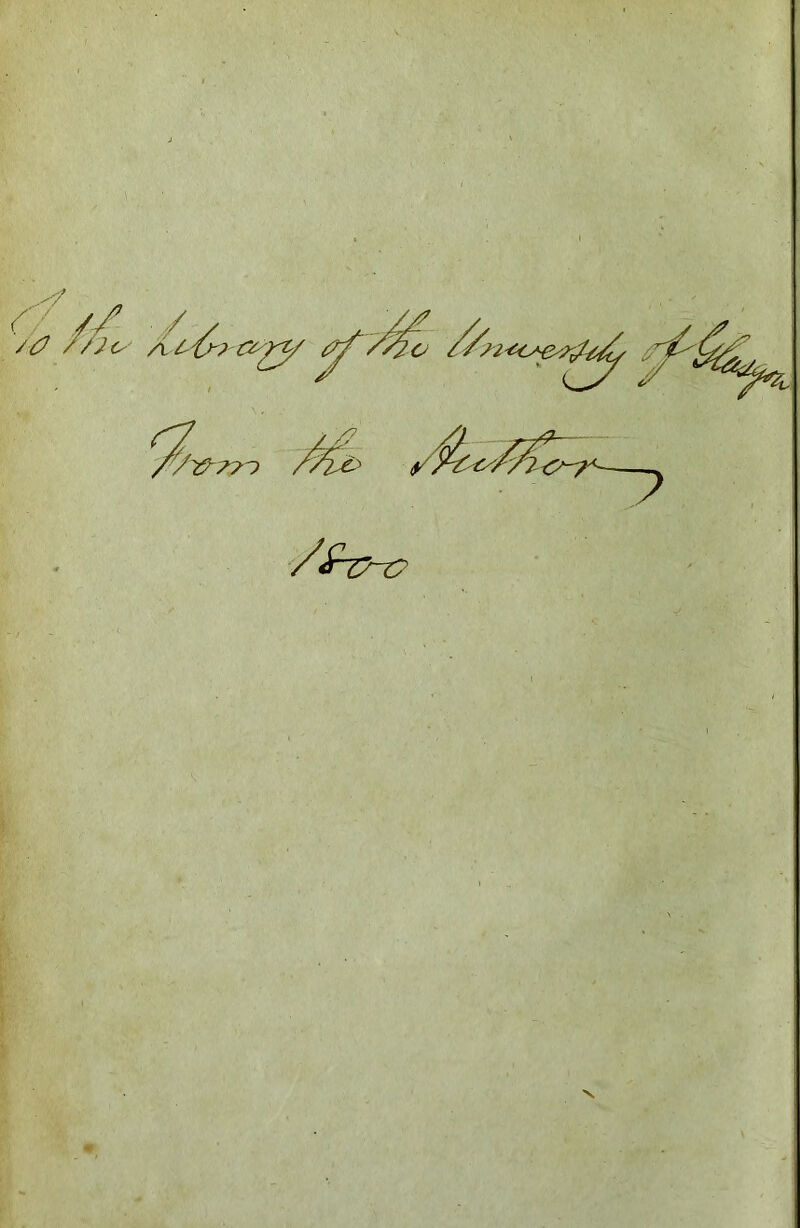 To the Library of the University of Glasgow
From the Author
1800